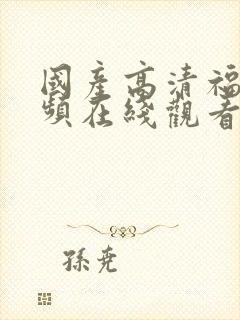 國產高清福
頻在綫觀看
孫堯